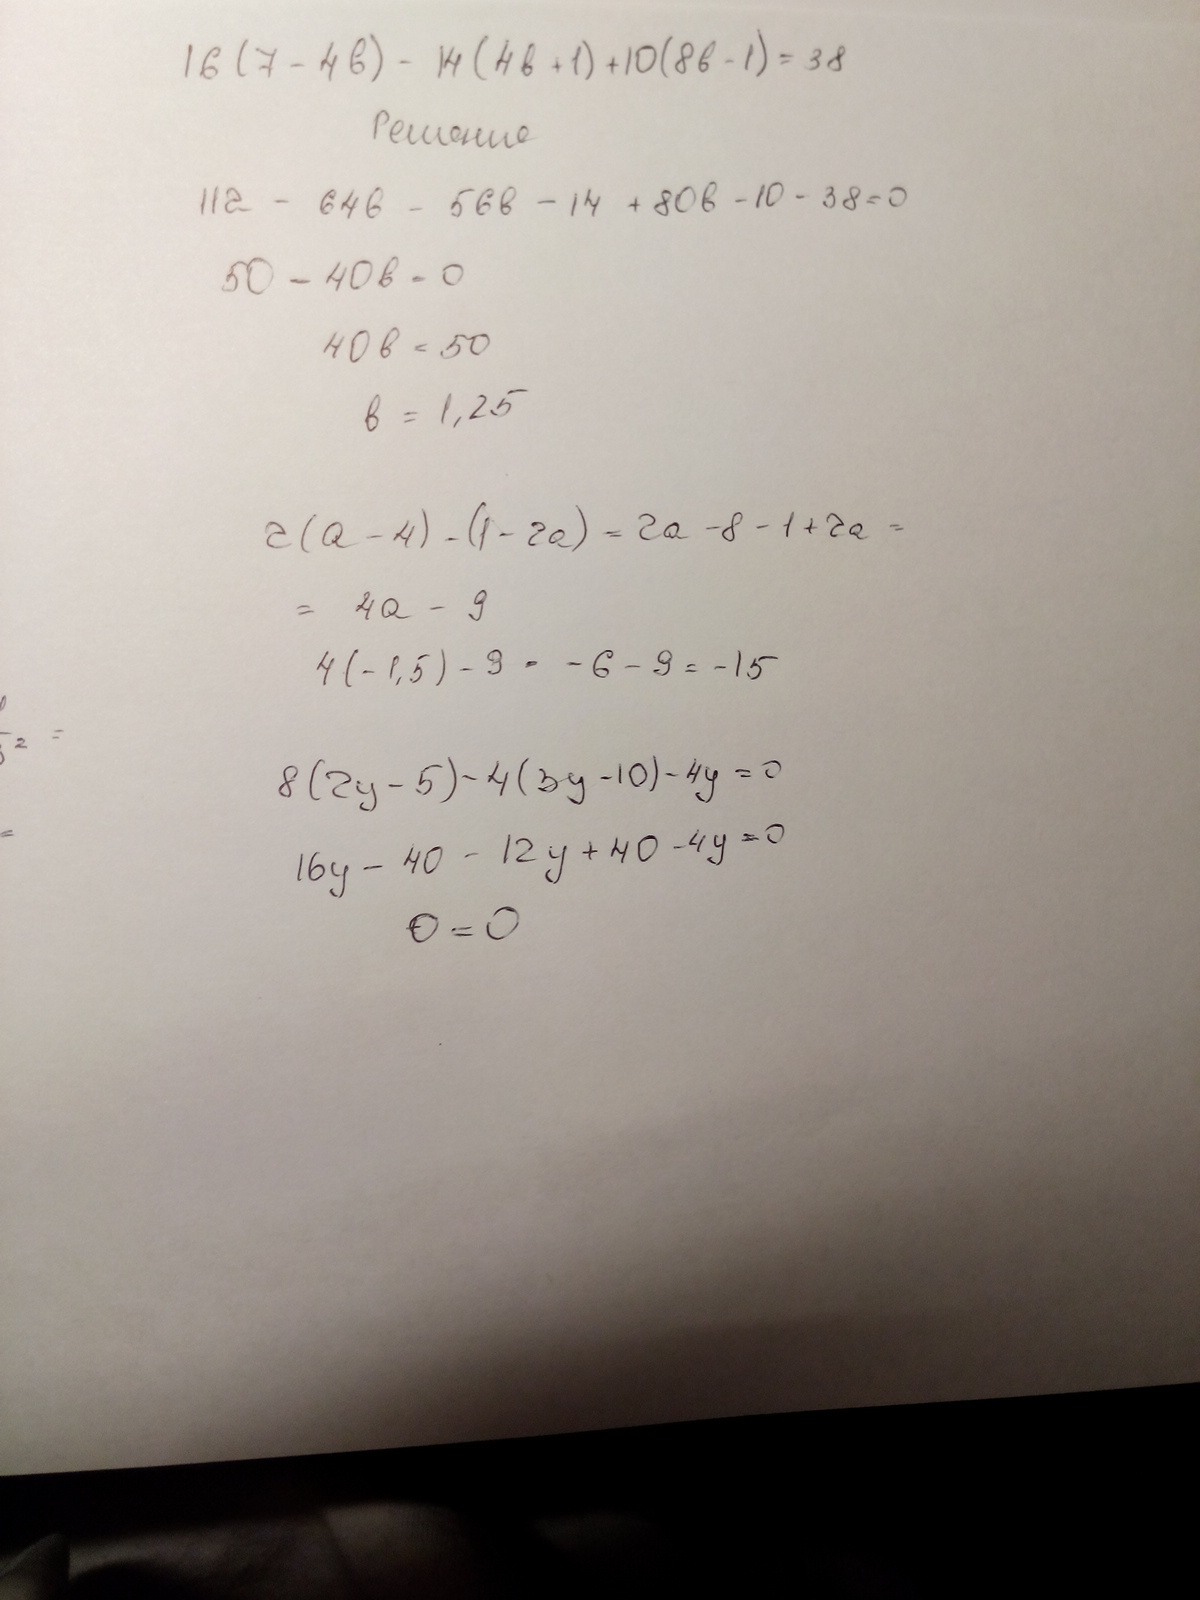 16(7-4в) - 14(4в+1)+10(8в-1)=38
Решение
112 - 64в - 56в - 14 + 80в - 10 - 38=0
50 - 40в = 0
40в = 50
в = 1,25
2(a-4) - (1-2a) = 2a - 8 - 1 + 2a =
= 4a - 9
4(-1,5) - 9 = -6 - 9 = -15
8(2y-5) - 4(3y-10) - 4y = 0
16y - 40 - 12y + 40 - 4y = 0
0 = 0